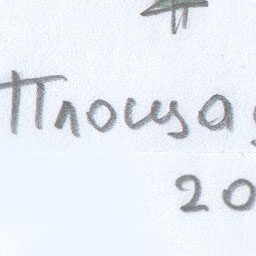 Площа
20